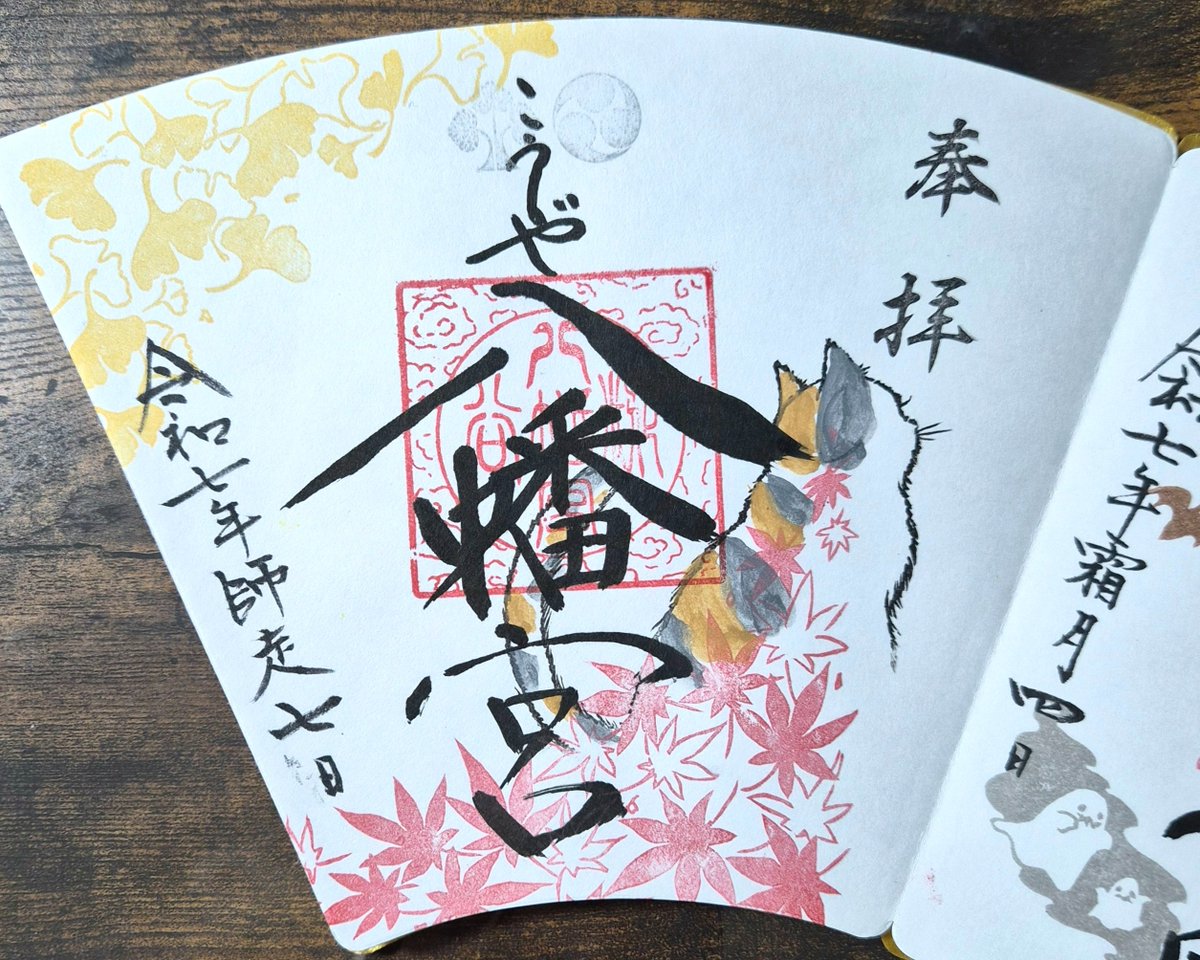 令和七年霜月四日
奉拝
こうじや
八幡宮
令和七年師走七日